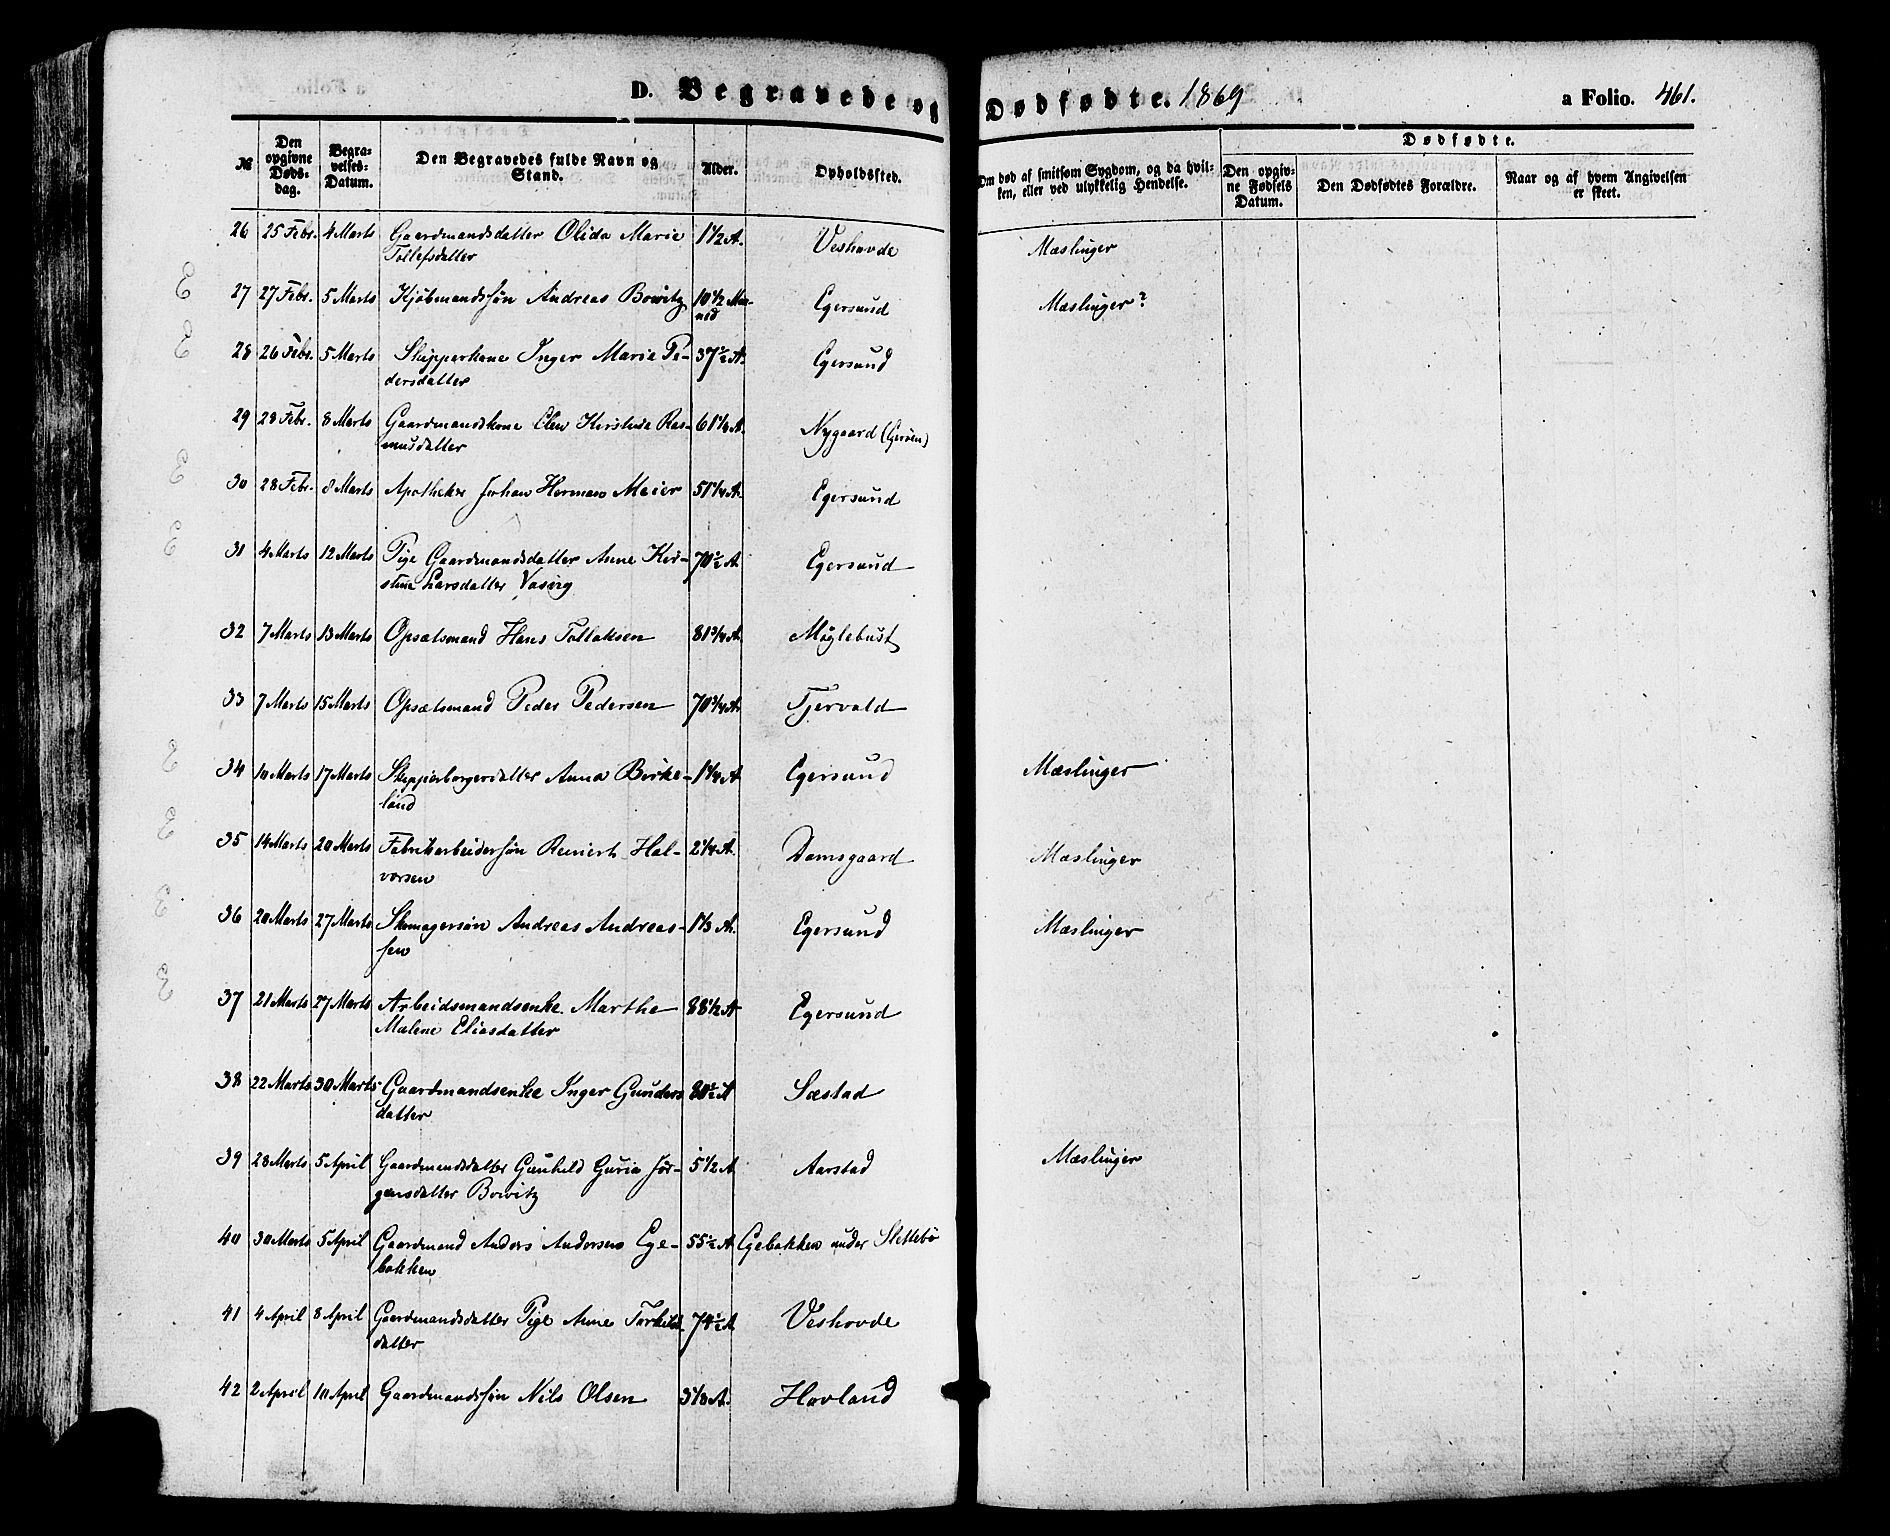 D. Begravede og Dødfødte. 1869 a Folio. 461.
№ Den opgivne Døds-dag. Begra-velses-Datum. Den Begravedes fulde Navn og Stand. Alder. Opholdssted. Om død af smitsom Sygdom, og da hvil-ken, eller ved ulykkelig Hendelse. Dødfødte. Den opgiv-ne Fødsels Datum. Den Dødfødtes Forældre. Naar og af hvem Angivelsen er skeet.
26 25 Febr. 4 Marts Gaardmandsdatter Olida Marie 1 1/2 A. Veshovde Mæslinger
Tollefsdatter
27 27 Febr. 5 Marts Kjøbmandssøn Andreas Bowitz 10 1/2 Maa- Egersund Mæslinger?
ned
28 26 Febr. 5 Marts Skipperkone Inger Marie Pe- 37 1/2 A. Egersund
dersdatter
29 28 Febr. 8 Marts Gaardmandskone Elen Kirstine Ras- 61 1/4 A. Nygaard (Gerøen)
musdatter
30 28 Febr. 8 Marts Apotheker Johan Herman Meier 51 1/4 A. Egersund
31 4 Marts 12 Marts Pige Gaardmandsdatter Anne Kir- 70 1/2 A Egersund
stine Larsdatter Vasvig
32 7 Marts 13 Marts Opsætsmand Hans Tollaksen 81 3/4 A. Møglebust
33 7 Marts 15 Marts Opsætsmand Peder Pedersen 70 3/4 A. Tjervald
34 10 Marts 17 Marts Skipperborgerdatter Anna Birke- 1 1/4 A Egersund Mæslinger
land
35 14 Marts 20 Marts Fabrikarbeidersøn Reinert Hal- 2 1/4 A. Damsgaard Mæslinger
vorsen
36 20 Marts 27 Marts Skomagersøn Andreas Andreas- 1 1/3 A. Egersund Mæslinger
sen
37 21 Marts 27 Marts Arbeidsmandsenke Marthe 88 1/2 A Egersund
Malene Eliasdatter
38 22 Marts 30 Marts Gaardmandsenke Inger Gunders 80 1/2 A Sæstad
datter
39 28 Marts 5 April Gaardmandsdatter Gunhild Guria Jør- 5 1/2 A Aarstad Mæslinger
gensdatter Bowitz
40 30 Marts 5 April Gaardmand Anders Andersen Ege- 55 1/2 A. Egebakken under Slettebø
bakken
41 4 April 8 April Gaardmandsdatter Pige Anne Torkilds 74 1/2 A Veshovde
datter
42 2 April 10 April Gaardmandssøn Nils Olsen 3 1/3 A. Hovland